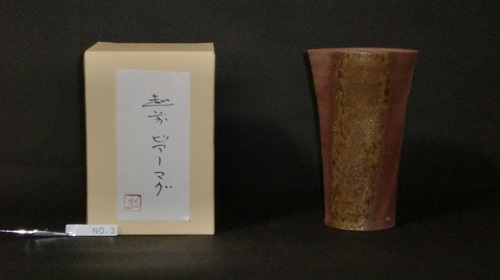 越前 ビアーマグ
NO.3